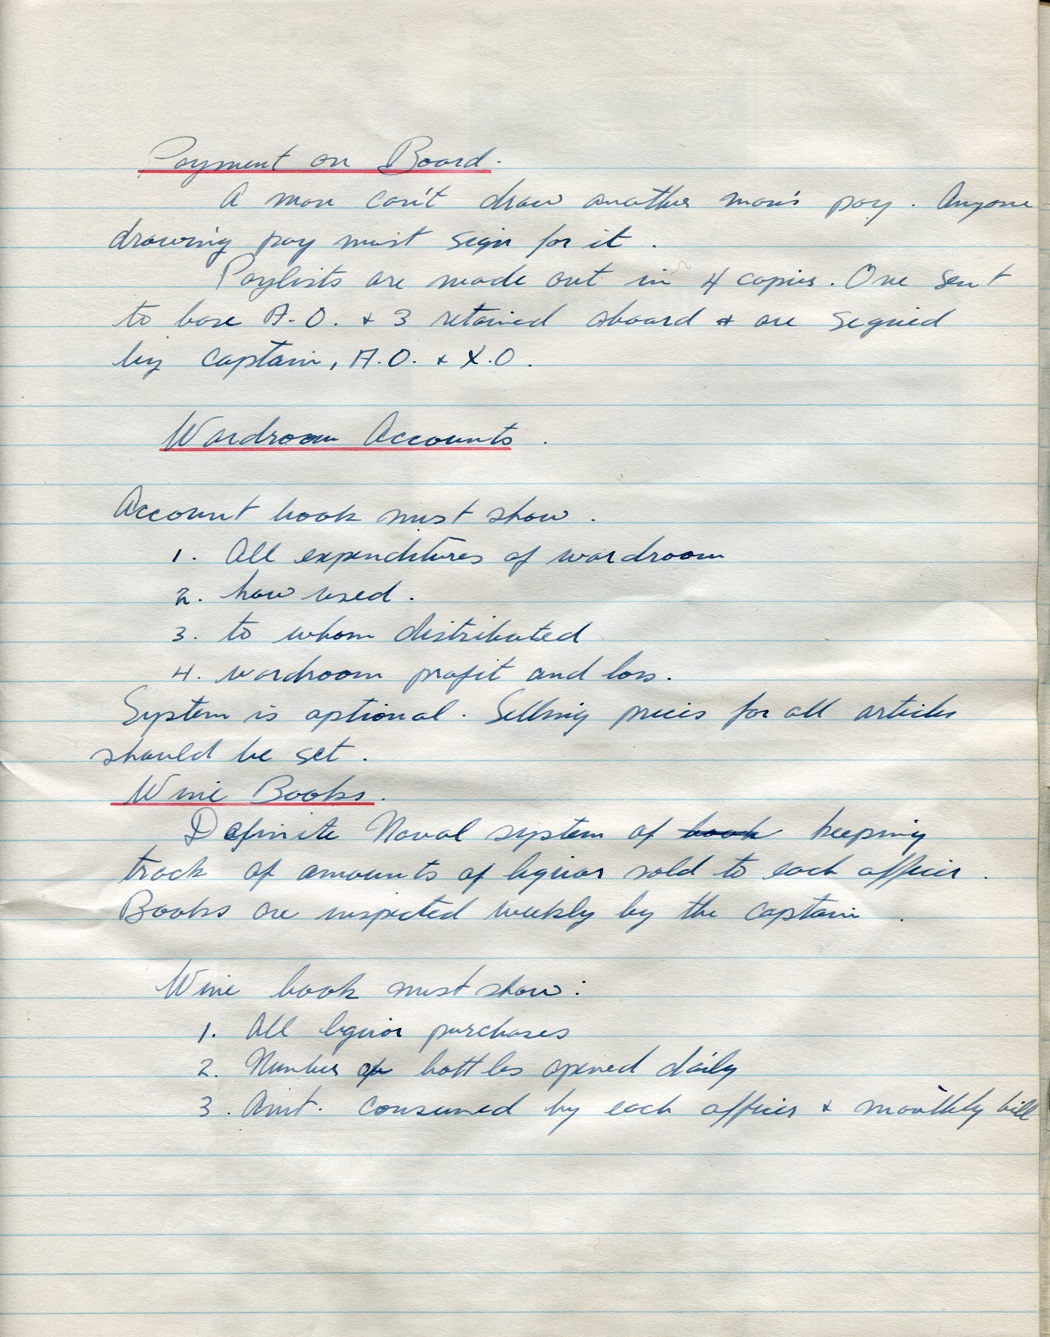 Payment on Board.
A man can't draw another man's pay. Anyone
drawing pay must sign for it.
Paylists are made out in 4 copies. One sent
to base A.O. + 3 retained aboard + are signed
by captain, A.O. + X.O.
Wardroom Accounts.
Account book must show.
1. All expenditures of wardroom
2. how used.
3. to whom distributed
4. wardroom profit and loss.
System is optional. Selling prices for all articles
should be set.
Wine Books.
Definite Naval system of book keeping
track of amounts of liquor sold to each officer.
Books are inspected weekly by the captain.
Wine book must show:
1. All liquor purchases
2. Number of bottles opened daily
3. Amt. consumed by each officer + monthly bill